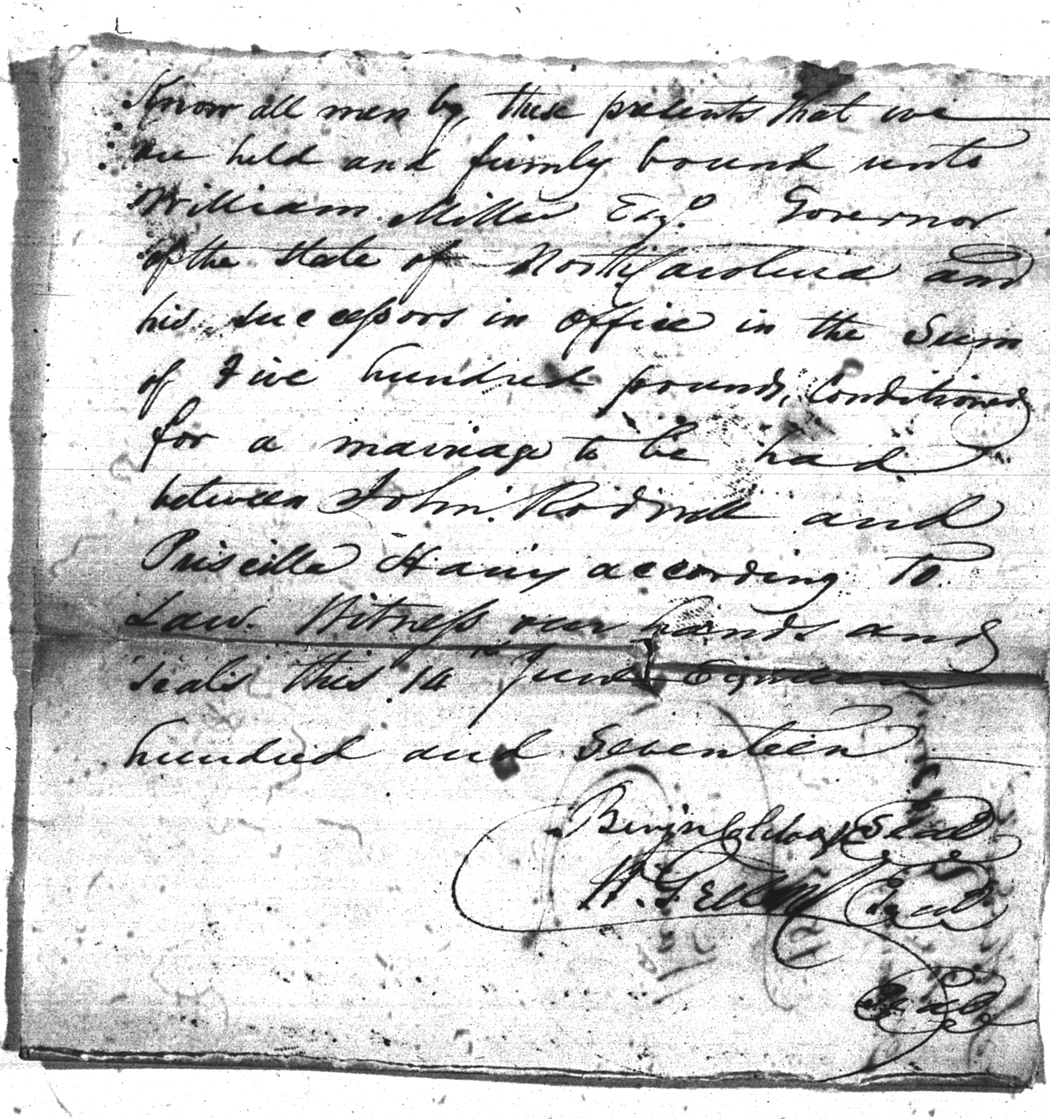 Know all men by these presents that we
are held and firmly bound unto
William Miller Esqr Governor
of the State of North Carolina and
his successors in office in the Sum
of Five hundred pounds, Conditioned
for a marriage to be had
between John Rodwell and
Priscilla according to
Law. Witness our hands and
seals this 14 June Eighteen
hundred and Seventeen
Seal
W. Seal
Seal